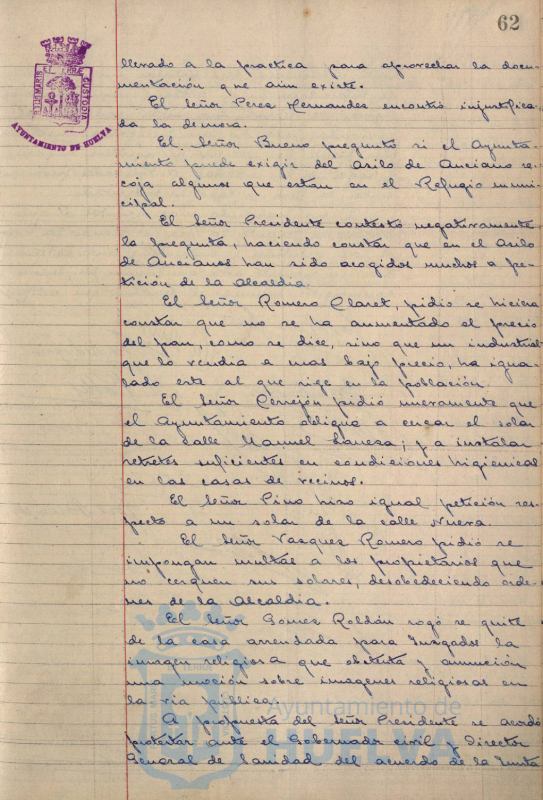 62
PORTUS MARIS ET TERRAE CUSTODIA
AYUNTAMIENTO DE HUELVA
llevado a la practica para aprovechar la docu-
mentación que aún existe.
El Señor Perez Hernandez encontró injustifica-
da la demora.
El Señor Bueno preguntó si el Ayunta-
miento puede exigir del Asilo de Anciano re-
coja algunos que estan en el Refugio muni-
cipal.
El Señor Presidente contestó negativamente
la pregunta, haciendo constar que en el Asilo
de Ancianos han sido acogidos muchos a pe-
tición de la Alcaldia.
El Señor Romero Claret, pidió se hiciera
constar que no se ha aumentado el precio
del pan, como se dice, sino que un industrial
que lo vendia a mas bajo precio, ha igua-
lado este al que rige en la población.
El Señor Cerrejón pidió nuevamente que
el Ayuntamiento obligue a cercar el solar
de la calle Manuel ; y a instalar
retretes suficientes en condiciones higienicas
en las casas de vecinos.
El Señor Pino hizo igual petición res-
pecto a un solar de la calle Nueva.
El Señor Vazquez Romero pidió se
impongan multas a los propietarios que
no cerquen sus solares, desobedeciendo orde-
nes de la Alcaldia.
El Señor Gomez Roldán rogó se quite
de la casa arrendada para Juzgados la
imagen religiosa que ostenta y anunción
una moción sobre imagenes religiosas en
la via pública.
A propuesta del Señor Presidente se acordó
protestar ante el Gobernador civil y Director
General de Sanidad del acuerdo de la Junta
Ayuntamiento de
HUELVA